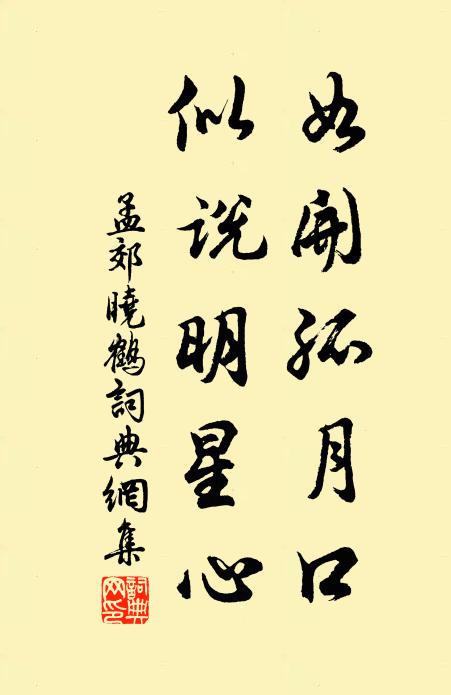 如開孤月口
似說明星心
孟郊曉鶴詞典網集
詞典網印